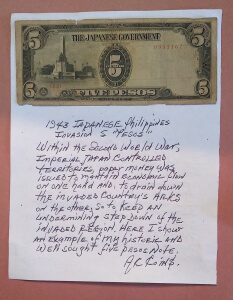 THE JAPANESE GOVERNMENT
5 5 5
FIVE PESOS
1943 JAPANESE Philippines
Invasion 5 "Pesos"
Within the Second World War,
Imperial Japan controlled
territories, paper money was
issued to maintain economic flow
on one hand and, to drain down
the invaded country's
on the other, so to keep an
undermining step down of the
invaded region. Here I show
an example of my historic and
well sought five pesos note.